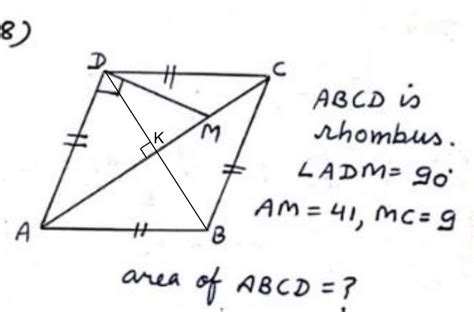 8)
D
C
ABCD is
rhombus.
K
M
∠ADM = 90°
AM = 41, MC = 9
A
B
area of ABCD = ?